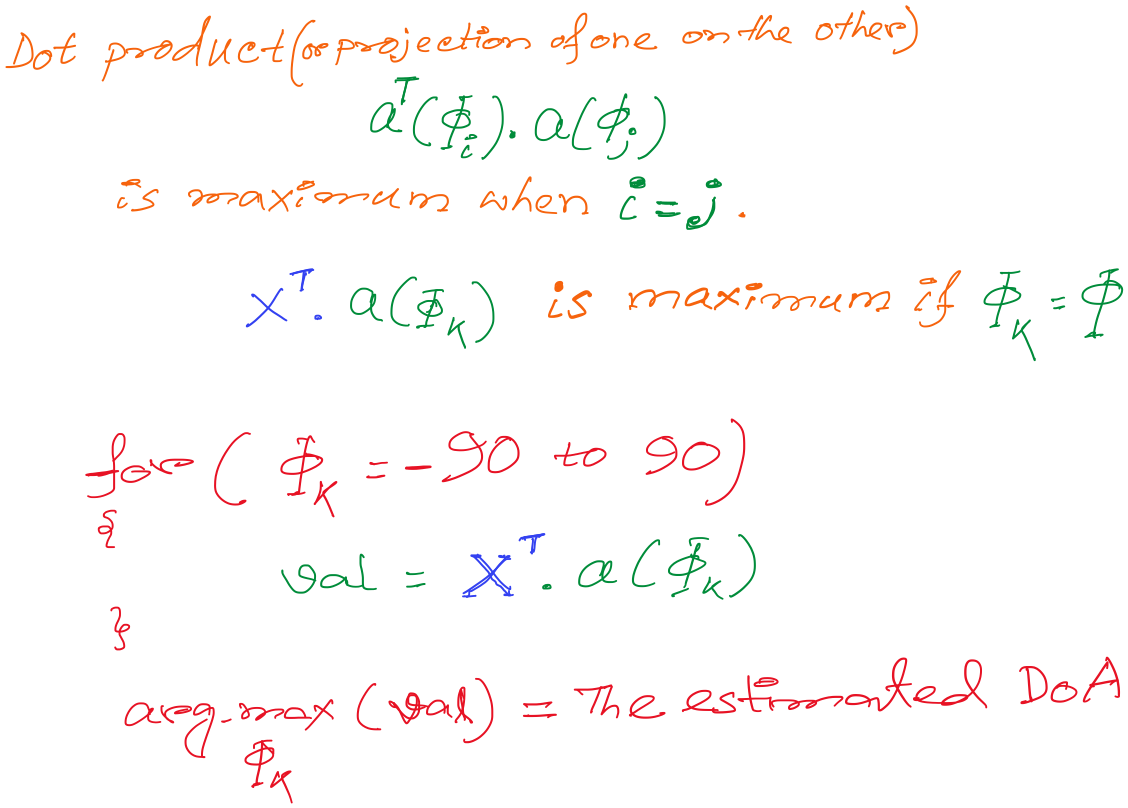 Dot product (or projection of one on the other)
a^T(Φ_i). a(Φ_j)
is maximum when i = j.
X^T. a(Φ_K) is maximum if Φ_K = Φ
for ( Φ_K = -90 to 90)
{
val = X^T. a(Φ_K)
}
arg-max (val) = The estimated DoA
Φ_K